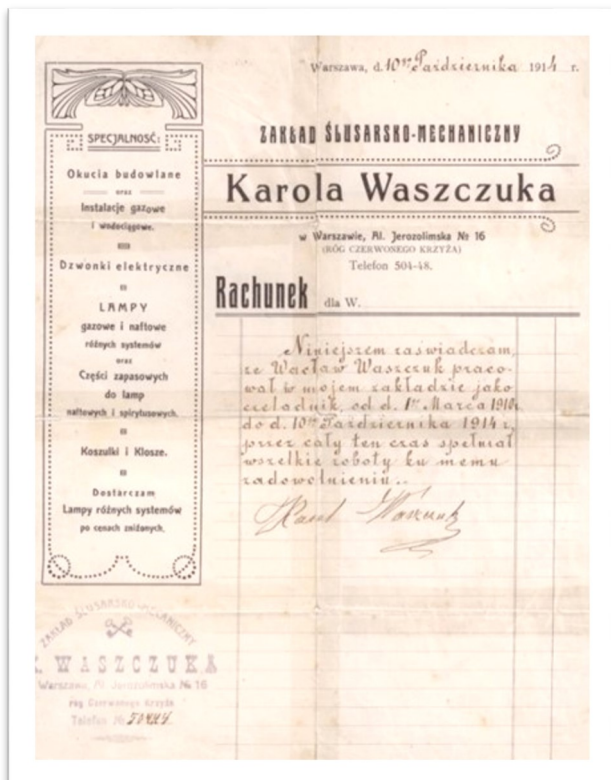 Warszawa, d. 10go Października 1914 r.
SPECJALNOŚĆ:
Okucia budowlane
oraz
Instalacje gazowe
i wodociągowe.
Dzwonki elektryczne
LAMPY
gazowe i naftowe
różnych systemów
oraz
Części zapasowych
do lamp
naftowych i spirytusowych.
Koszulki i Klosze.
Dostarczam
Lampy różnych systemów
po cenach zniżonych.
ZAKŁAD ŚLUSARSKO-MECHANICZNY
Karola Waszczuka
w Warszawie, Al. Jerozolimska № 16
(RÓG CZERWONEGO KRZYŻA)
Telefon 504-48.
Rachunek dla W.
Niniejszem zaświadczam,
że Wacław Waszczuk praco-
wał w mojem zakładzie jako
czeladnik, od d. 1go Marca 1910r.
do d. 10go Października 1914 r,
przez cały ten czas spełniał
wszelkie roboty ku memu
zadowolnieniu..
Karol Waszczuk
ZAKŁAD ŚLUSARSKO-MECHANICZNY
K. WASZCZUKA
Warszawa, Al. Jerozolimska № 16
róg Czerwonego Krzyża
Telefon №